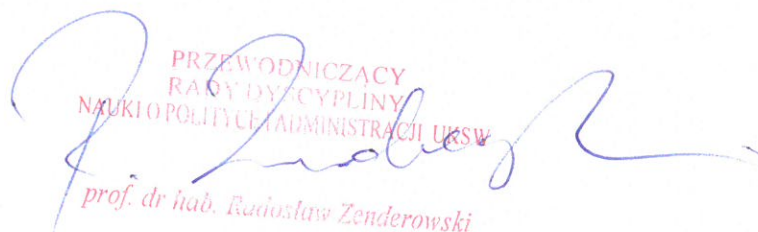 PRZEWODNICZĄCY
RADY DYSCYPLINY
NAUKI O POLITYCE I ADMINISTRACJI UKSW
prof. dr hab. Radosław Zenderowski